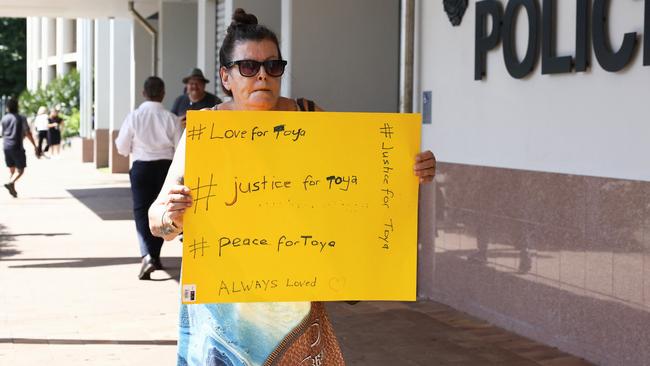 POLIC
# Love for Toya
# justice for Toya
# peace for Toya
ALWAYS Loved
# Justice for Toya